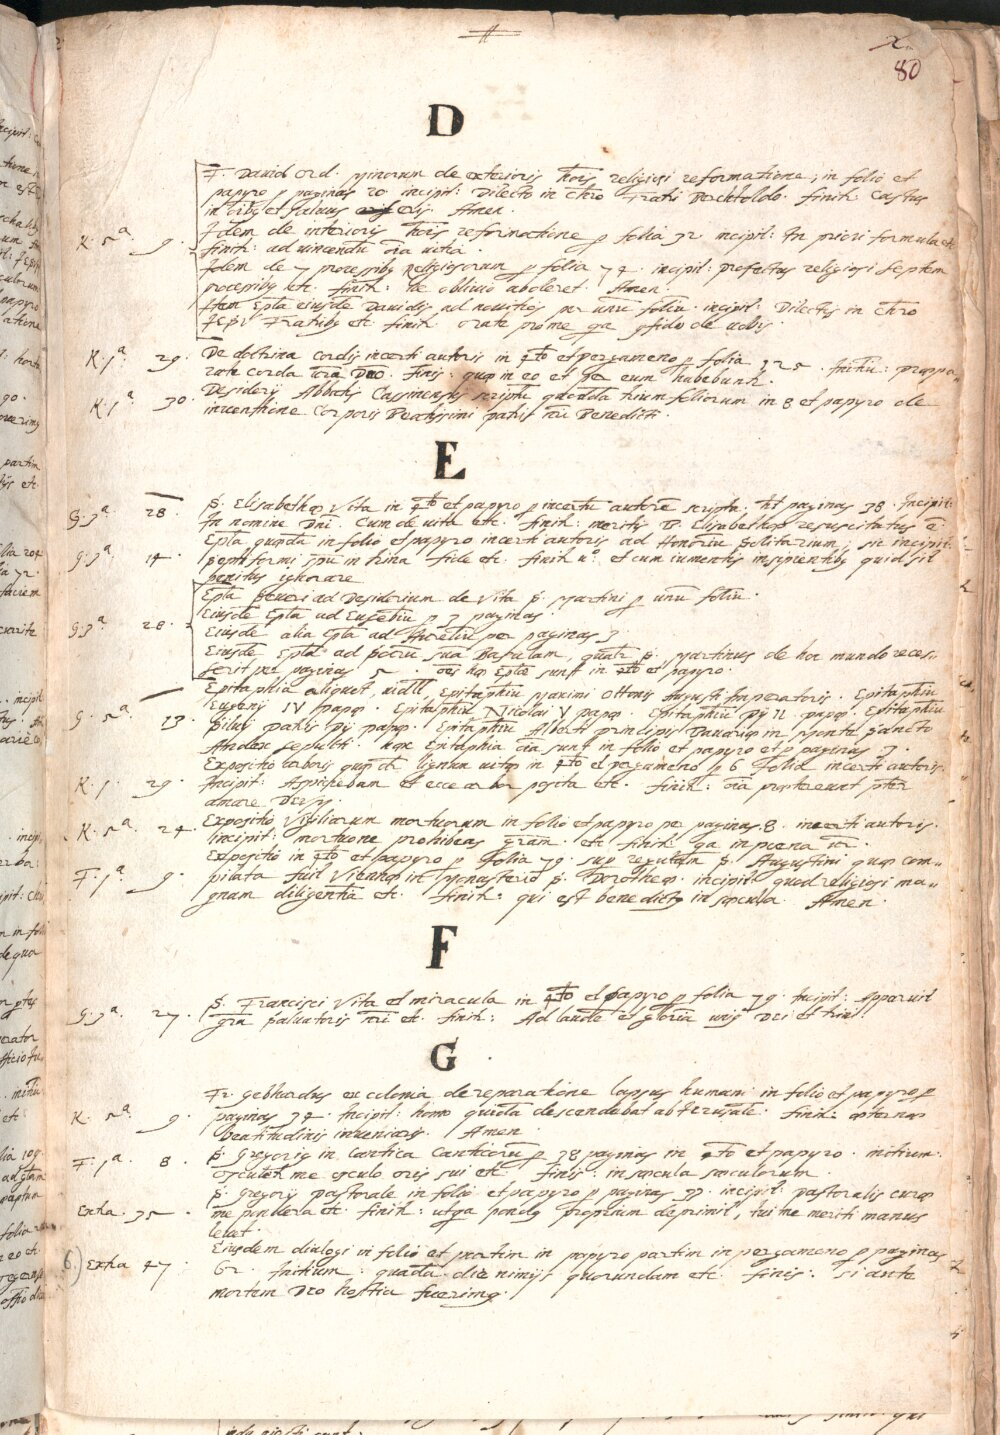 80
D
F. David Ord. Minorum de exterioris hõis religiosi reformatione, in folio et
papyro p paginas 20. incipit: Dilecto in Chro Fratri Bechtoldo. finit: Castus
in cibq et salvus eris. Amen.
K. 5ª. 9. Idem de interioris hõis reformatione p folia 32 incipit: In priori formula etc
finit: ad vincendũ õia vitia.
Idem de 7 processibq Religiosorum p folia 74. incipit: profectus religiosi septem
processibq etc. finit: ne oblivio aboleret. Amen.
Item Epla eiusdẽ Davidis ad novitios per unũ foliũ. incipit: Dilectis in Chro
Fratribq etc. finit orate pro me qa confido de vobis.
K. 1ª. 29. De doctrina cordis incerti autoris in 4to et pergameno p folia 325. Initiũ: præpa-
rate corda vrã Deo. Finis: quæ in eo et per eum habebunt.
K. 1ª. 30. Desiderij Abbatis Cassinensis scriptũ quoddã trium foliorum in 8 et papyro de
inventione Corporis Beatissimi patris nri Benedicti.
E
G. 3ª. 28. S. Elisabethæ Vita in 4to et papyro p incertũ autorẽ scripta, ht paginas 38. Incipit:
In nomine Dni. Cum de vita etc. finit: meritis B. Elisabethæ resuscitatus ẽ.
G. 3ª. 14. Epla quædã in folio et papyro incerti autoris ad Honoriũ Solitarium, sic incipit:
Septiformi spũ in trina fide etc. finit uº. et cum iumentis insipientibq quid sit
penitus ignorare
Epla Severi ad Desiderium de Vita S. Martini p unũ foliũ.
Eiusdẽ Epla ad Eusebiũ p 3 paginas.
G. 3ª. 28. Eiusdẽ alia Epla ad Aureliũ per paginas 3
Eiusdẽ Epla ad Socrũ suã Basulam, quõr S. Martinus de hoc mundo reces-
serit per paginas 5 oẽs hæ Eplæ sunt in 4to et papyro
Epitaphia aliquot, vidlt, Epitaphiũ Maximi Ottonis Augusti Imperatoris. Epitaphiũ
Eugenij IV papæ. Epitaphiũ Nicolai V papæ. Epitaphiũ Pij II. papæ. Epitaphiũ
G. 5ª. 13. Silvij patris Pij papæ. Epitaphiũ Alberti principis Bavariæ in Monte Sancto
Andex sepulti. hæc Epitaphia õia sunt in folio et papyro et p paginas 7.
Expositio arboris quæ dr lignum vitæ in 4to et pergameno p 6 folia incerti autoris.
K. 1. 29. Incipit: Aspiciebam et ecce arbor posita etc. finit: õia prætereunt præter
amare Deum.
K. 5ª. 24. Expositio Vigiliarum mortuorum in folio et papyro per paginas 8. incerti autoris.
incipit: mortuo ne prohibeas grãm. etc. finit qa in pœna
Expositio in 4to et papyro p folia 79. sup regulam S. Augustini quæ com-
F. 1ª. 9. pilata fuit Viennæ in Monasterio S. Dorotheæ. incipit: quod religiosi ma-
gnam diligentiã etc. finit: qui est benedictq in sæcula. Amen.
F
G. 3ª. 27. S. Francisci Vita et miracula in 4to et papyro p folia 79. Incipit: Apparuit
grã Salvatoris nri etc. finit: Ad laudẽ et gloriã unis Dei et trini.
G
Fr. Gebhardus ex colonia de reparatione lapsus humani in folio et papyro p
K. 5ª. 9. paginas 74. Incipit: homo quidã descendebat ab Jerusalẽ. finit: æternæ
beatitudinis invenieris. Amen.
F. 1ª. 8. S. Gregorij in Cantica Canticorũ p 38 paginas in 4to et papyro. initium:
Osculetr me osculo oris sui etc. finis: in sæcula sæculorum.
S. Gregorij Pastorale in folio et papyro p paginas 37. incipit: Pastoralis curæ
Extra. 35. me pondera etc. finit: ut qa pondq proprium deprimit, tui me meriti manus
levet.
Eiusdem dialogi in folio et partim in papyro partim in pergameno p paginas
6) Extra 47. 62. Initium: quadã die nimijs quorundam etc. finis: si ante
mortem Deo hostia fuerimq.